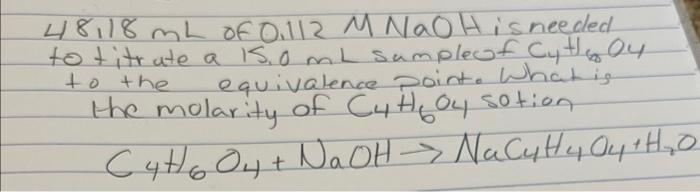 48.18 mL of 0.112 M NaOH is needed
to titrate a 15.0 mL sample of C4H6O4
to the equivalence point. What is
the molarity of C4H6O4 sotion
C4H6O4 + NaOH → NaC4H4O4 + H2O